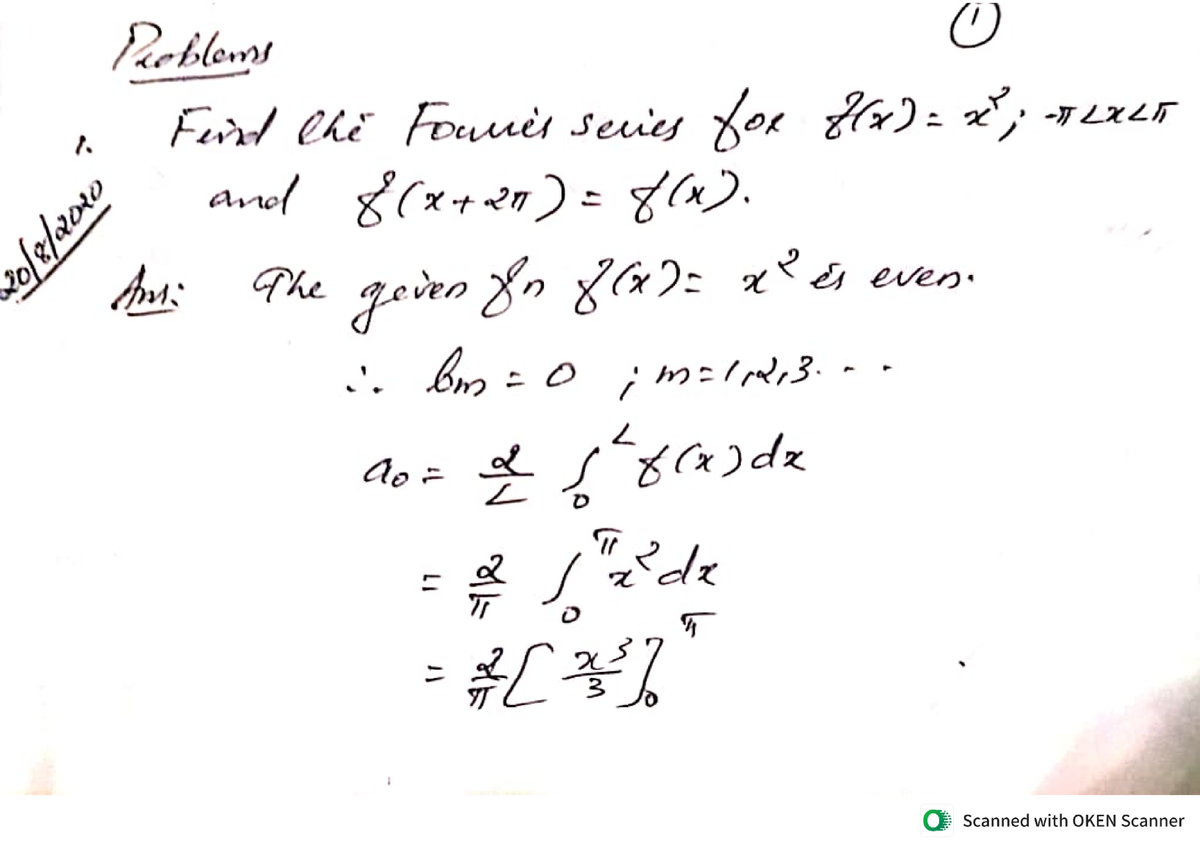 ①
Problems
1. Find the Fourier series for f(x) = x²; -π<x<π
and f(x+2π) = f(x).
20/8/2020
Ans: The given fn f(x) = x² is even.
∴ bm = 0 ; m=1,2,3...
a₀ = 2/L ∫₀^L f(x)dx
= 2/π ∫₀^π x²dx
= 2/π [x³/3]₀^π
Scanned with OKEN Scanner